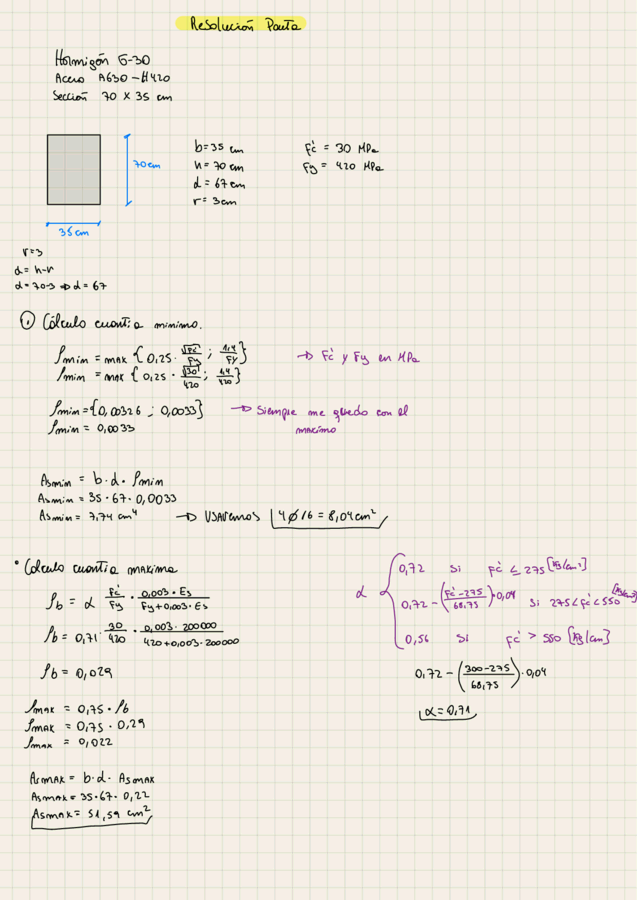 Resolución Pauta
Hormigón G-30
Acero A630-H420
Sección 70 x 35 cm
70cm
35cm
b=35 cm
h=70 cm
d=67cm
r=3cm
Fć = 30 MPa
Fy = 420 MPa
r=3
d= h-r
d=70-3 ⇒ d=67
① Cálculo cuantía mínimo.
ρmin = max {0,25 · √Fć/Fy ; 1,4/Fy}
ρmin = max {0,25 · √30/420 ; 1,4/420}
→ Fć y Fy en MPa
ρmin = {0,00326 ; 0,0033}
ρmin = 0,0033
→ Siempre me quedo con el
maximo
Asmin = b·d·ρmin
Asmin = 35·67·0,0033
Asmin = 7,74 cm⁴ → USAremos 4Ø16 = 8,04cm²
• Cálculo cuantía maxima
ρb = α Fć/Fy · 0,003·Es/Fy+0,003·Es
ρb = 0,71 · 30/420 · 0,003·200000/420+0,003·200000
ρb = 0,029
ρmax = 0,75·ρb
ρmax = 0,75·0,29
ρmax = 0,022
Asmax = b·d·Asmax
Asmax = 35·67·0,22
Asmax = 51,59 cm²
α { 0,72 si Fć ≤ 275 [kg/cm²]
0,72 - (Fć-275/68,75)·0,04 si 275<Fć<550 [kg/cm²]
0,56 si Fć > 550 [kg/cm]
0,72 - (300-275/68,75)·0,04
α=0,71